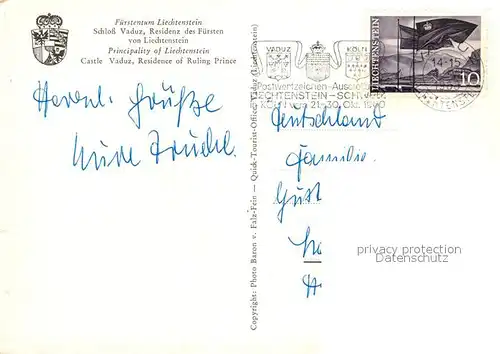 Fürstentum Liechtenstein
Schloß Vaduz, Residenz des Fürsten
von Liechtenstein
Principality of Liechtenstein
Castle Vaduz, Residence of Ruling Prince
Herzl. Grüße
Copyright: Photo Baron v. Falz-Fein — Quick-Tourist-Office, Vaduz (Liechtenstein)
VADUZ KÖLN
Postwertzeichen-Ausstell
LIECHTENSTEIN - SCHW
KÖLN vom 21.-30. Okt. 1960
LIECHTENSTEIN
10
14-15
Deutschland
Familie
Gust
privacy protection
Delcampe.net